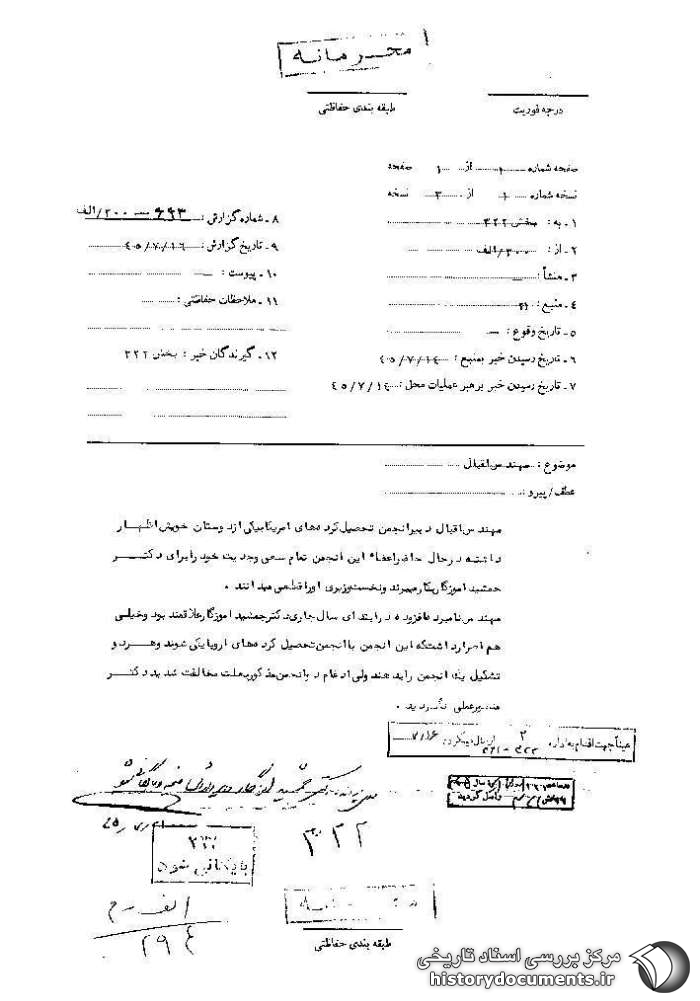 محرمانه
درجه فوریت
طبقه بندی حفاظتی
صفحه شماره ۱ از ۱ صفحه
نسخه شماره ۱ از ۳ نسخه
۱ـ به : بخش ۳۲۲
۲ـ از : ۳۰۰/الف
۳ـ منشأ : ــ
۴ـ منبع :
۵ـ تاریخ وقوع : ــ
۶ـ تاریخ رسیدن خبر بمنبع : ۴۵/۷/۱۴
۷ـ تاریخ رسیدن خبر برهبر عملیات محل : ۴۵/۷/۱۴
۸ـ شماره گزارش : ۲۰۰/الف
۹ـ تاریخ گزارش : ۴۵/۷/۱۶
۱۰ـ پیوست : ــ
۱۱ـ ملاحظات حفاظتی :
۱۲ـ گیرندگان خبر : بخش ۳۲۲
موضوع : مهندس اقبال
عطف/پیرو :
مهندس اقبال دبیر انجمن تحصیل کرده های امریکا بیکی از دوستان خویش اظهار
داشته در حال حاضر اعضاء این انجمن تمام سعی و جدیت خود را برای دکتر
جمشید آموزگار بکار میبرند و نخست وزیری او را قطعی میدانند .
مهندس نامبرده افزوده در ابتدای سال جاری دکتر جمشید آموزگار علاقمند بود و خیلی
هم اصرار داشت که این انجمن با انجمن تحصیل کرده های اروپا یکی شوند و هر دو
تشکیل یک انجمن را بدهند ولی ادغام دو انجمن مذکور بعلت مخالفت شدید دکتر
منوچهر عملی نگردید .
عیناً جهت اقدام به اداره
ارسال میگردد ۷/۱۶
واصل گردید
۳۲۲
بایگانی شود
الف
۲۹۴
طبقه بندی حفاظتی
مرکز بررسی اسناد تاریخی
historydocuments.ir